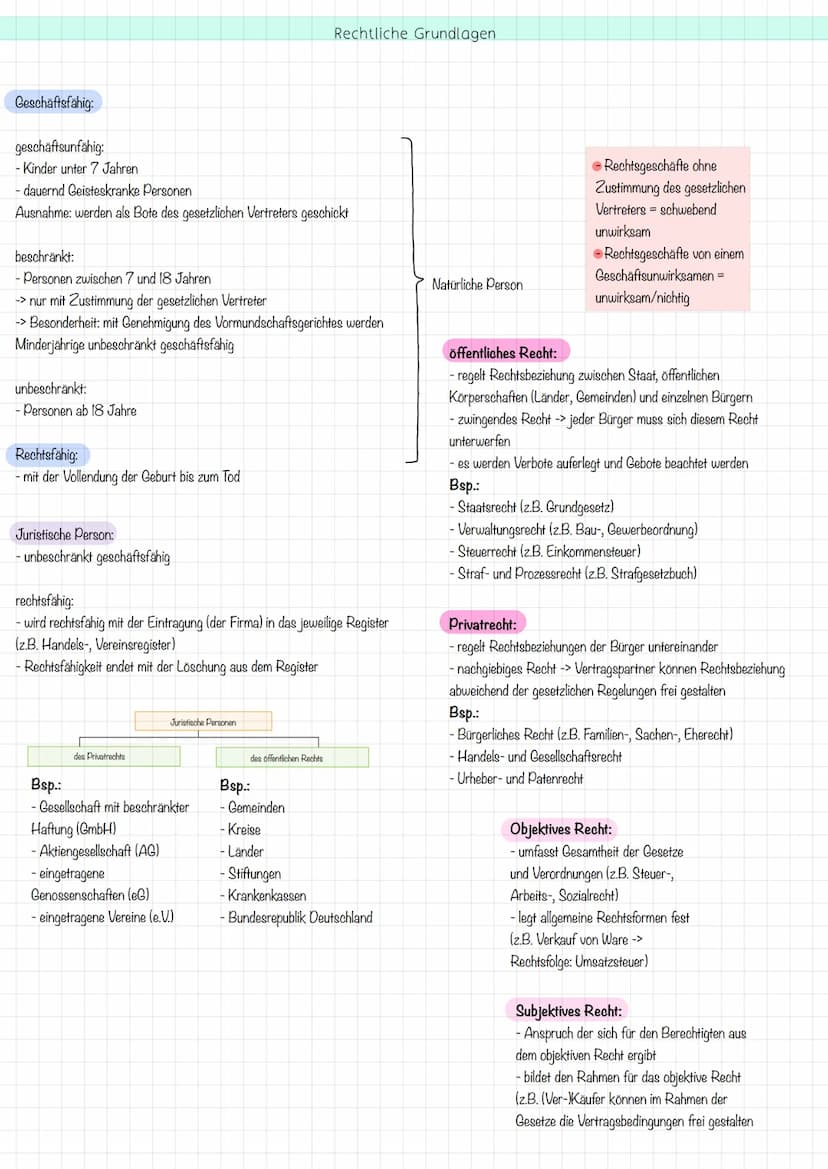 Rechtliche Grundlagen
Geschäftsfähig:
geschäftsunfähig:
- Kinder unter 7 Jahren
- dauernd Geisteskranke Personen
Ausnahme: werden als Bote des gesetzlichen Vertreters geschickt
beschränkt:
- Personen zwischen 7 und 18 Jahren
-> nur mit Zustimmung der gesetzlichen Vertreter
-> Besonderheit: mit Genehmigung des Vormundschaftsgerichtes werden
Minderjährige unbeschränkt geschäftsfähig
unbeschränkt:
- Personen ab 18 Jahre
Rechtsfähig:
- mit der Vollendung der Geburt bis zum Tod
Natürliche Person
Juristische Person:
- unbeschränkt geschäftsfähig
rechtsfähig:
- wird rechtsfähig mit der Eintragung (der Firma) in das jeweilige Register
(z.B. Handels-, Vereinsregister)
- Rechtsfähigkeit endet mit der Löschung aus dem Register
Juristische Personen
des Privatrechts
Bsp.:
- Gesellschaft mit beschränkter
Haftung (GmbH)
- Aktiengesellschaft (AG)
- eingetragene
Genossenschaften (eG)
- eingetragene Vereine (e.V.)
des öffentlichen Rechts
Bsp.:
- Gemeinden
- Kreise
- Länder
- Stiftungen
- Krankenkassen
- Bundesrepublik Deutschland
- Rechtsgeschäfte ohne
Zustimmung des gesetzlichen
Vertreters = schwebend
unwirksam
- Rechtsgeschäfte von einem
Geschäftsunwirksamen =
unwirksam/nichtig
öffentliches Recht:
- regelt Rechtsbeziehung zwischen Staat, öffentlichen
Körperschaften (Länder, Gemeinden) und einzelnen Bürgern
- zwingendes Recht -> jeder Bürger muss sich diesem Recht
unterwerfen
- es werden Verbote auferlegt und Gebote beachtet werden
Bsp.:
- Staatsrecht (z.B. Grundgesetz)
- Verwaltungsrecht (z.B. Bau-, Gewerbeordnung)
- Steuerrecht (z.B. Einkommensteuer)
- Straf- und Prozessrecht (z.B. Strafgesetzbuch)
Privatrecht:
- regelt Rechtsbeziehungen der Bürger untereinander
- nachgiebiges Recht -> Vertragspartner können Rechtsbeziehung
abweichend der gesetzlichen Regelungen frei gestalten
Bsp.:
- Bürgerliches Recht (z.B. Familien-, Sachen-, Eherecht)
- Handels- und Gesellschaftsrecht
- Urheber- und Patenrecht
Objektives Recht:
- umfasst Gesamtheit der Gesetze
und Verordnungen (z.B. Steuer-,
Arbeits-, Sozialrecht)
- legt allgemeine Rechtsformen fest
(z.B. Verkauf von Ware ->
Rechtsfolge: Umsatzsteuer)
Subjektives Recht:
- Anspruch der sich für den Berechtigten aus
dem objektiven Recht ergibt
- bildet den Rahmen für das objektive Recht
(z.B. (Ver-)Käufer können im Rahmen der
Gesetze die Vertragsbedingungen frei gestalten